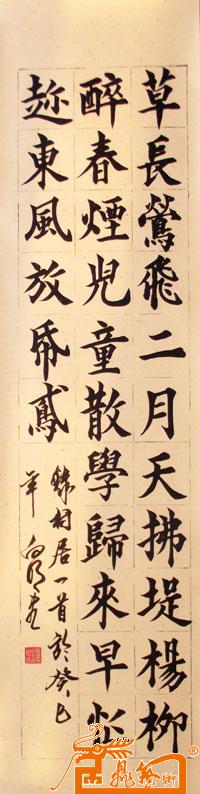 草長鶯飛二月天拂堤楊柳
醉春煙兒童散學歸來早忙
趂東風放帋鳶
錄村居一首於癸巳
年